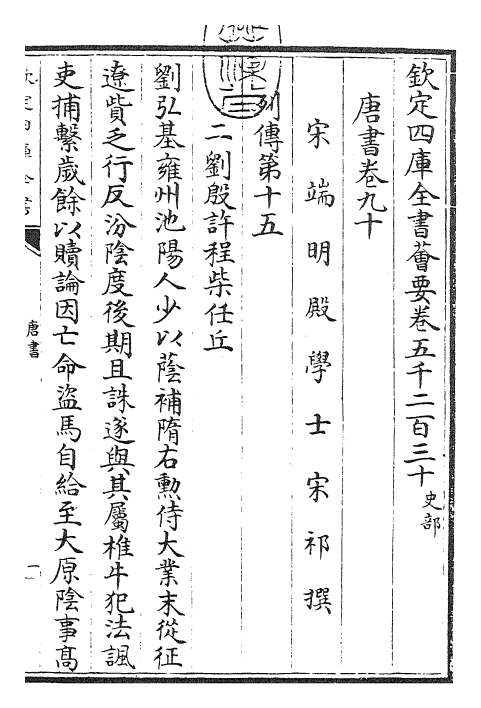 欽定四庫全書薈要卷五千二百三十 史部
唐書卷九十
宋端明殿學士宋祁撰
列傳第十五
二劉殷許程柴任丘
劉弘基雍州池陽人少以蔭補隋右勲侍大業末從征
遼貲乏行及汾陰度後期且誅遂與其屬椎牛犯法諷
吏捕繫歲餘以贖論因亡命盜馬自給至大原陰事髙
唐書
一